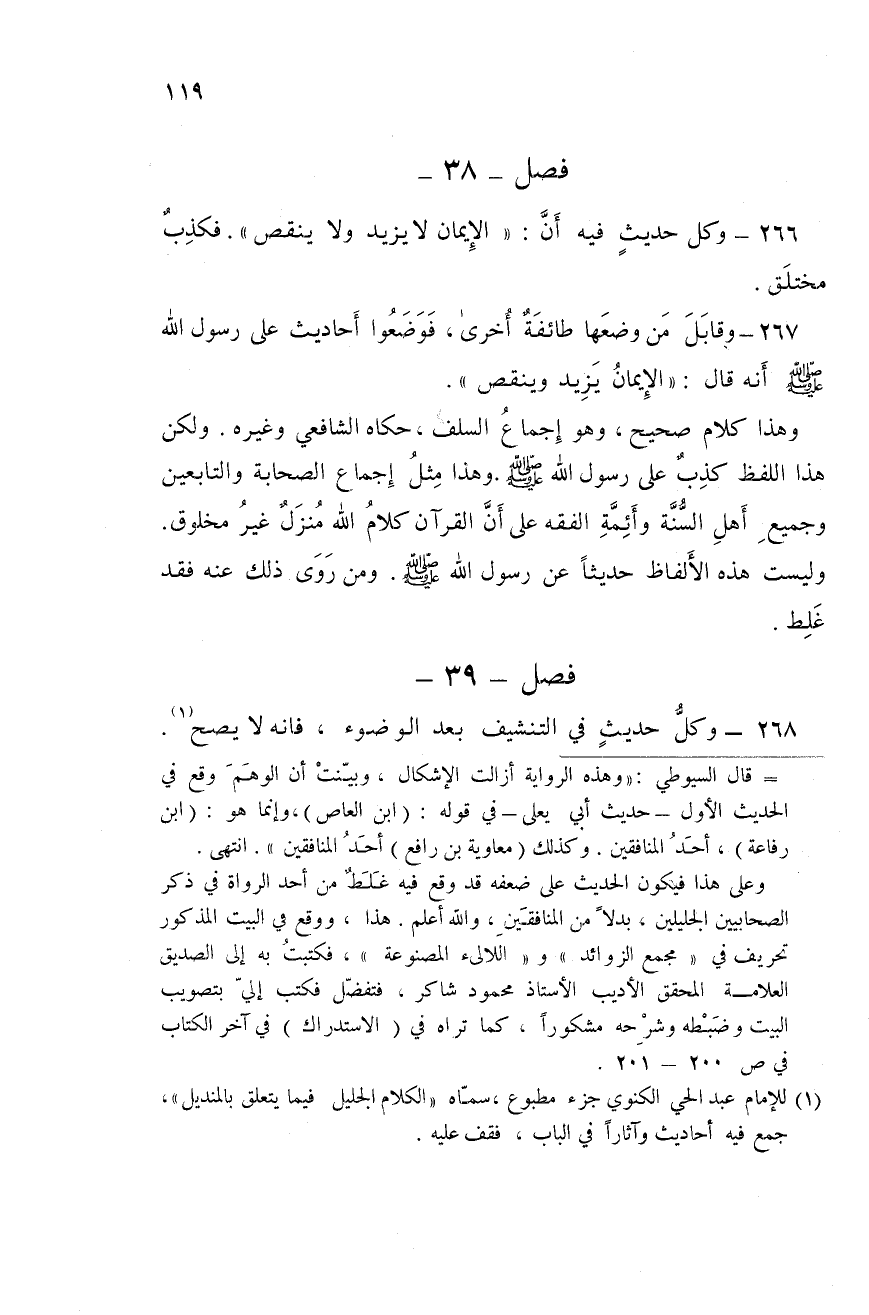 ١١٩
فصل – ٣٨ –
٢٦٦ – وكل حديثٍ فيه أَنَّ : « الإِيمان لا يزيد ولا ينقص » . فكذِبٌ
مختلَق .
٢٦٧ – وقابَلَ مَن وضعَها طائفَةٌ أُخرىٰ ، فَوَضَعُوا أَحاديث على رسول الله
ﷺ أَنه قال : « الإِيمانُ يَزِيد وينقص » .
وهذا كلام صحيح ، وهو إِجماعُ السلف ، حكاه الشافعي وغيره . ولكن
هذا اللفظ كذِبٌ على رسول الله ﷺ . وهذا مِثلُ إِجماع الصحابة والتابعين
وجميعِ أَهلِ السُّنَّة وأَئِمَّةِ الفقه على أَنَّ القرآن كلامُ الله مُنزَلٌ غيرُ مخلوق .
وليست هذه الأَلفاظ حديثاً عن رسول الله ﷺ . ومن رَوَى ذلك عنه فقد
غَلِط .
فصل – ٣٩ –
٢٦٨ – وكلُّ حديثٍ في التنشيف بعد الوضوء ، فانه لا يصح(١) .
= قال السيوطي : «وهذه الرواية أزالت الإشكال ، وبيّنتْ أن الوهَمَ وقع في
الحديث الأول – حديث أبي يعلى – في قوله : ( ابن العاص ) ، وإنما هو : ( ابن
رفاعة ) ، أحَدُ المنافقين . وكذلك ( معاوية بن رافع ) أحَدُ المنافقين » . انتهى .
وعلى هذا فيكون الحديث على ضعفه قد وقع فيه غَلَطٌ من أحد الرواة في ذكر
الصحابيين الجليلين ، بدلاً من المنافقَينِ ، والله أعلم . هذا ، ووقع في البيت المذكور
تحريف في « مجمع الزوائد » و « اللالىء المصنوعة » ، فكتبتُ به إلى الصديق
العلامـة المحقق الأديب الأستاذ محمود شاكر ، فتفضّل فكتب إليّ بتصويب
البيت وضَبْطه وشرْحه مشكوراً ، كما تراه في ( الاستدراك ) في آخر الكتاب
في ص ٢٠٠ – ٢٠١ .
(١) للإمام عبد الحي الكنوي جزء مطبوع ، سمّاه « الكلام الجليل فيما يتعلق بالمنديل » ،
جمع فيه أحاديث وآثاراً في الباب ، فقف عليه .